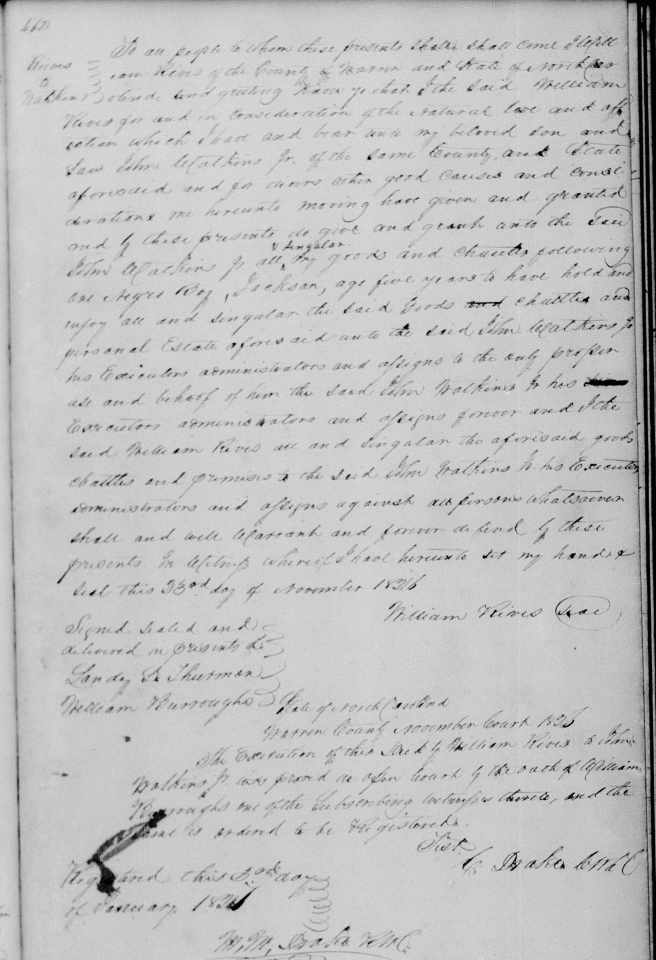 To all people to whom these presents shall shall come I Will
Rives
to
Watkins
iam Rives of the County of Warren and State of North Car
olend send greeting Know ye that I the said William
Rives for and in consideration of the Natural love and aff
ection which I have and bear unto my beloved son and
Law John Watkins Jr. of the same County and State
aforesaid and for divers other good causes and consi
derations me hereunto moving have given and granted
and by these presents do give and grant unto the said
John Watkins Jr all & Singular my goods and chattles following
one Negro Boy, Jackson, age five years to have hold and
enjoy all and singular the said Goods and chattles and
personal Estate aforesaid unto the said John Watkins Jr
his Executors administrators and assigns to the only proper
use and behoof of him the said John Watkins Jr his
Executors administrators and assigns forever and I the
said William Rives all and singular the aforesaid goods
chattles and premises to the said John Watkins Jr his Executors
administrators and assigns against all persons whatsoever
shall and will Warrant and forever defend by these
presents In Witness whereof I have hereunto set my hand &
seal this 23rd day of November 1826
William Rives Seal
Signed sealed and
delivered in presents of
Landy Thurman
William Burroughs
State of North Carolina
Warren County November Court 1826
The Execution of this Deed by William Rives to John
Watkins Jr. was proved in open Court by the oath of William
Burroughs one of the Subscribing witnesses thereto, and the
same is ordered to be Registered.
Test
C. Drake CWC
Registered this day
of January
M. M. Drake R.W.C.